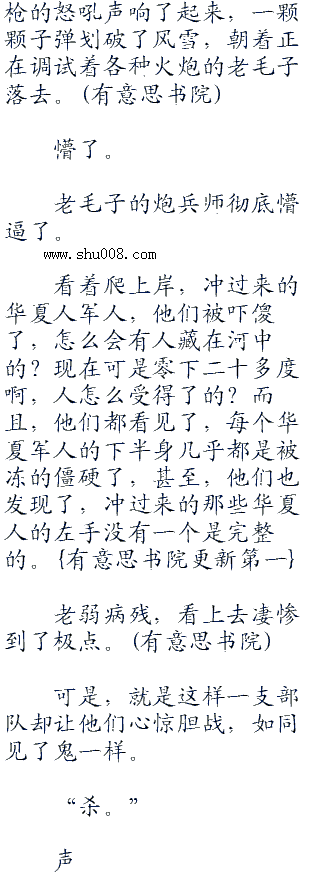 枪的怒吼声响了起来，一颗
颗子弹划破了风雪，朝着正
在调试着各种火炮的老毛子
落去。(有意思书院)
懵了。
老毛子的炮兵师彻底懵
逼了。
www.shu008.com
看着爬上岸，冲过来的
华夏人军人，他们被吓傻
了，怎么会有人藏在河中
的？现在可是零下二十多度
啊，人怎么受得了的？而
且，他们都看见了，每个华
夏军人的下半身几乎都是被
冻的僵硬了，甚至，他们也
发现了，冲过来的那些华夏
人的左手没有一个是完整
的。{有意思书院更新第一}
老弱病残，看上去凄惨
到了极点。(有意思书院)
可是，就是这样一支部
队却让他们心惊胆战，如同
见了鬼一样。
“杀。”
声